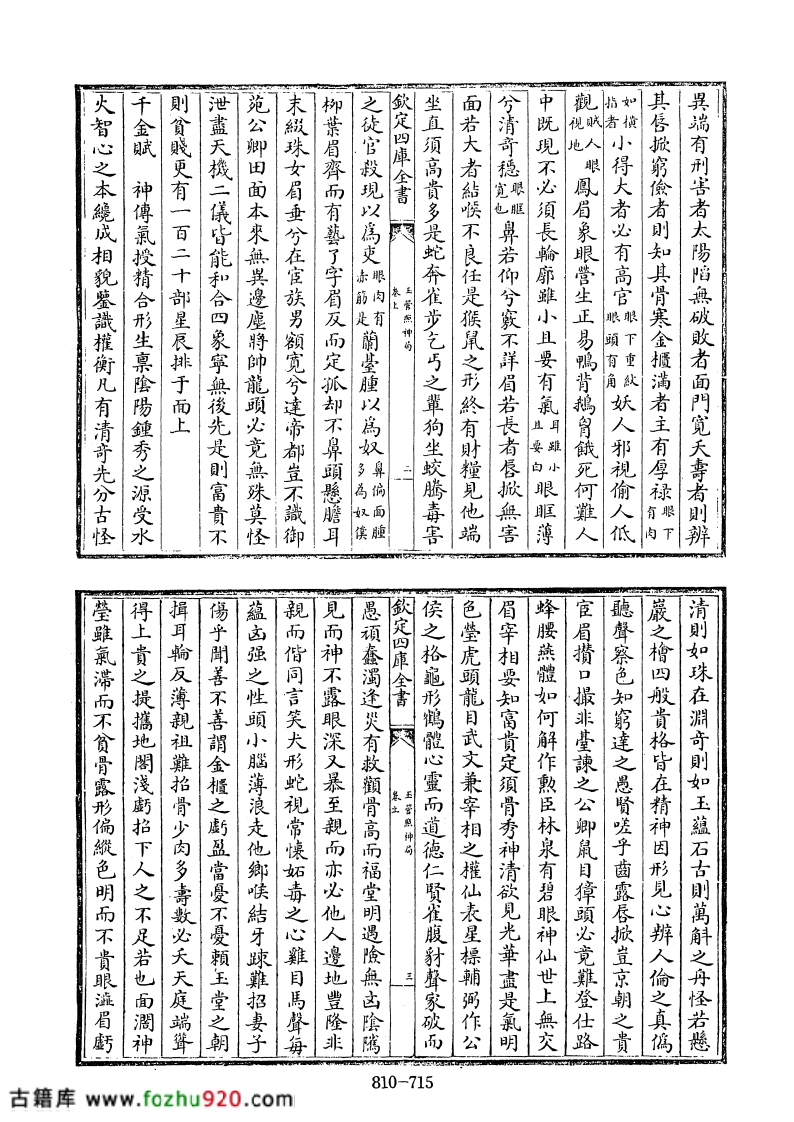 異端有刑害者太陽陷無破敗者面門寛夭壽者則辨
其唇掀窮儉者則知其骨寒金櫃滿者主有厚禄眼下有肉
如横指者小得大者必有高官眼下重紋眼頭有角妖人邪視偷人低
觀賊人眼視地鳳眉象眼營生正易鴨背鵝胷餓死何難人
中既現不必須長輪廓雖小且要有氣耳雖小且要白眼眶薄
兮清奇穩眼眶寛也鼻若仰兮竅不詳眉若長者唇掀無害
面若大者結喉不良任是猴鼠之形終有財糧見他端
坐直須高貴多是蛇奔雀步乞丐之輩狗坐蛟騰毒害
欽定四庫全書
玉管照神局
卷上
二
之徒官殺現以為吏眼肉有赤筋是蘭臺腫以為奴鼻偏面腫多為奴僕
柳葉眉齊而有藝了字眉反而定孤却不鼻頭懸膽耳
末綴珠女眉垂兮在宦族男額寛兮達帝都豈不識御
苑公卿田面本來無異邊塵將帥龍頭必竟無殊莫怪
泄盡天機二儀皆能和合四象寧無後先是則富貴不
則貧賤更有一百二十部星辰排于面上
千金賦　神傳氣授精合形生禀陰陽鍾秀之源受水
火智心之本纔成相貌鑒識權衡凡有清奇先分古怪
清則如珠在淵奇則如玉藴石古則萬斛之丹怪若懸
巖之檜四般貴格皆在精神因形見心辨人倫之真偽
聽聲察色知窮達之愚賢嗟乎齒露唇掀豈京朝之貴
宦眉攅口撮非臺諫之公卿鼠目獐頭必竟難登仕路
蜂腰燕體如何解作勲臣林泉有碧眼神仙世上無交
眉宰相要知富貴定須骨秀神清欲見光華盡是氣明
色瑩虎頭龍目武文兼宰相之權仙表星標輔弼作公
侯之格龜形鶴體心靈而道德仁賢雀腹豺聲家破而
欽定四庫全書
玉管照神局
卷上
三
愚頑蠢濁逢災有救顴骨高而福堂明遇險無凶陰隲
見而神不露眼深又暴至親而亦必他人邊地豐隆非
親而偕同言笑犬形蛇視常懷妬毒之心雞目馬聲每
藴凶强之性頭小腦薄浪走他鄉喉結牙疎難招妻子
傷乎聞善不善謂金櫃之虧盈當憂不憂賴玉堂之朝
揖耳輪反薄親祖難招骨少肉多壽數必夭天庭端聳
得上貴之提攜地閣淺虧招下人之不足若也面濶神
瑩雖氣滯而不貧骨露形偏縱色明而不貴眼澁眉虧
810-715
古籍库 www.fozhu920.com